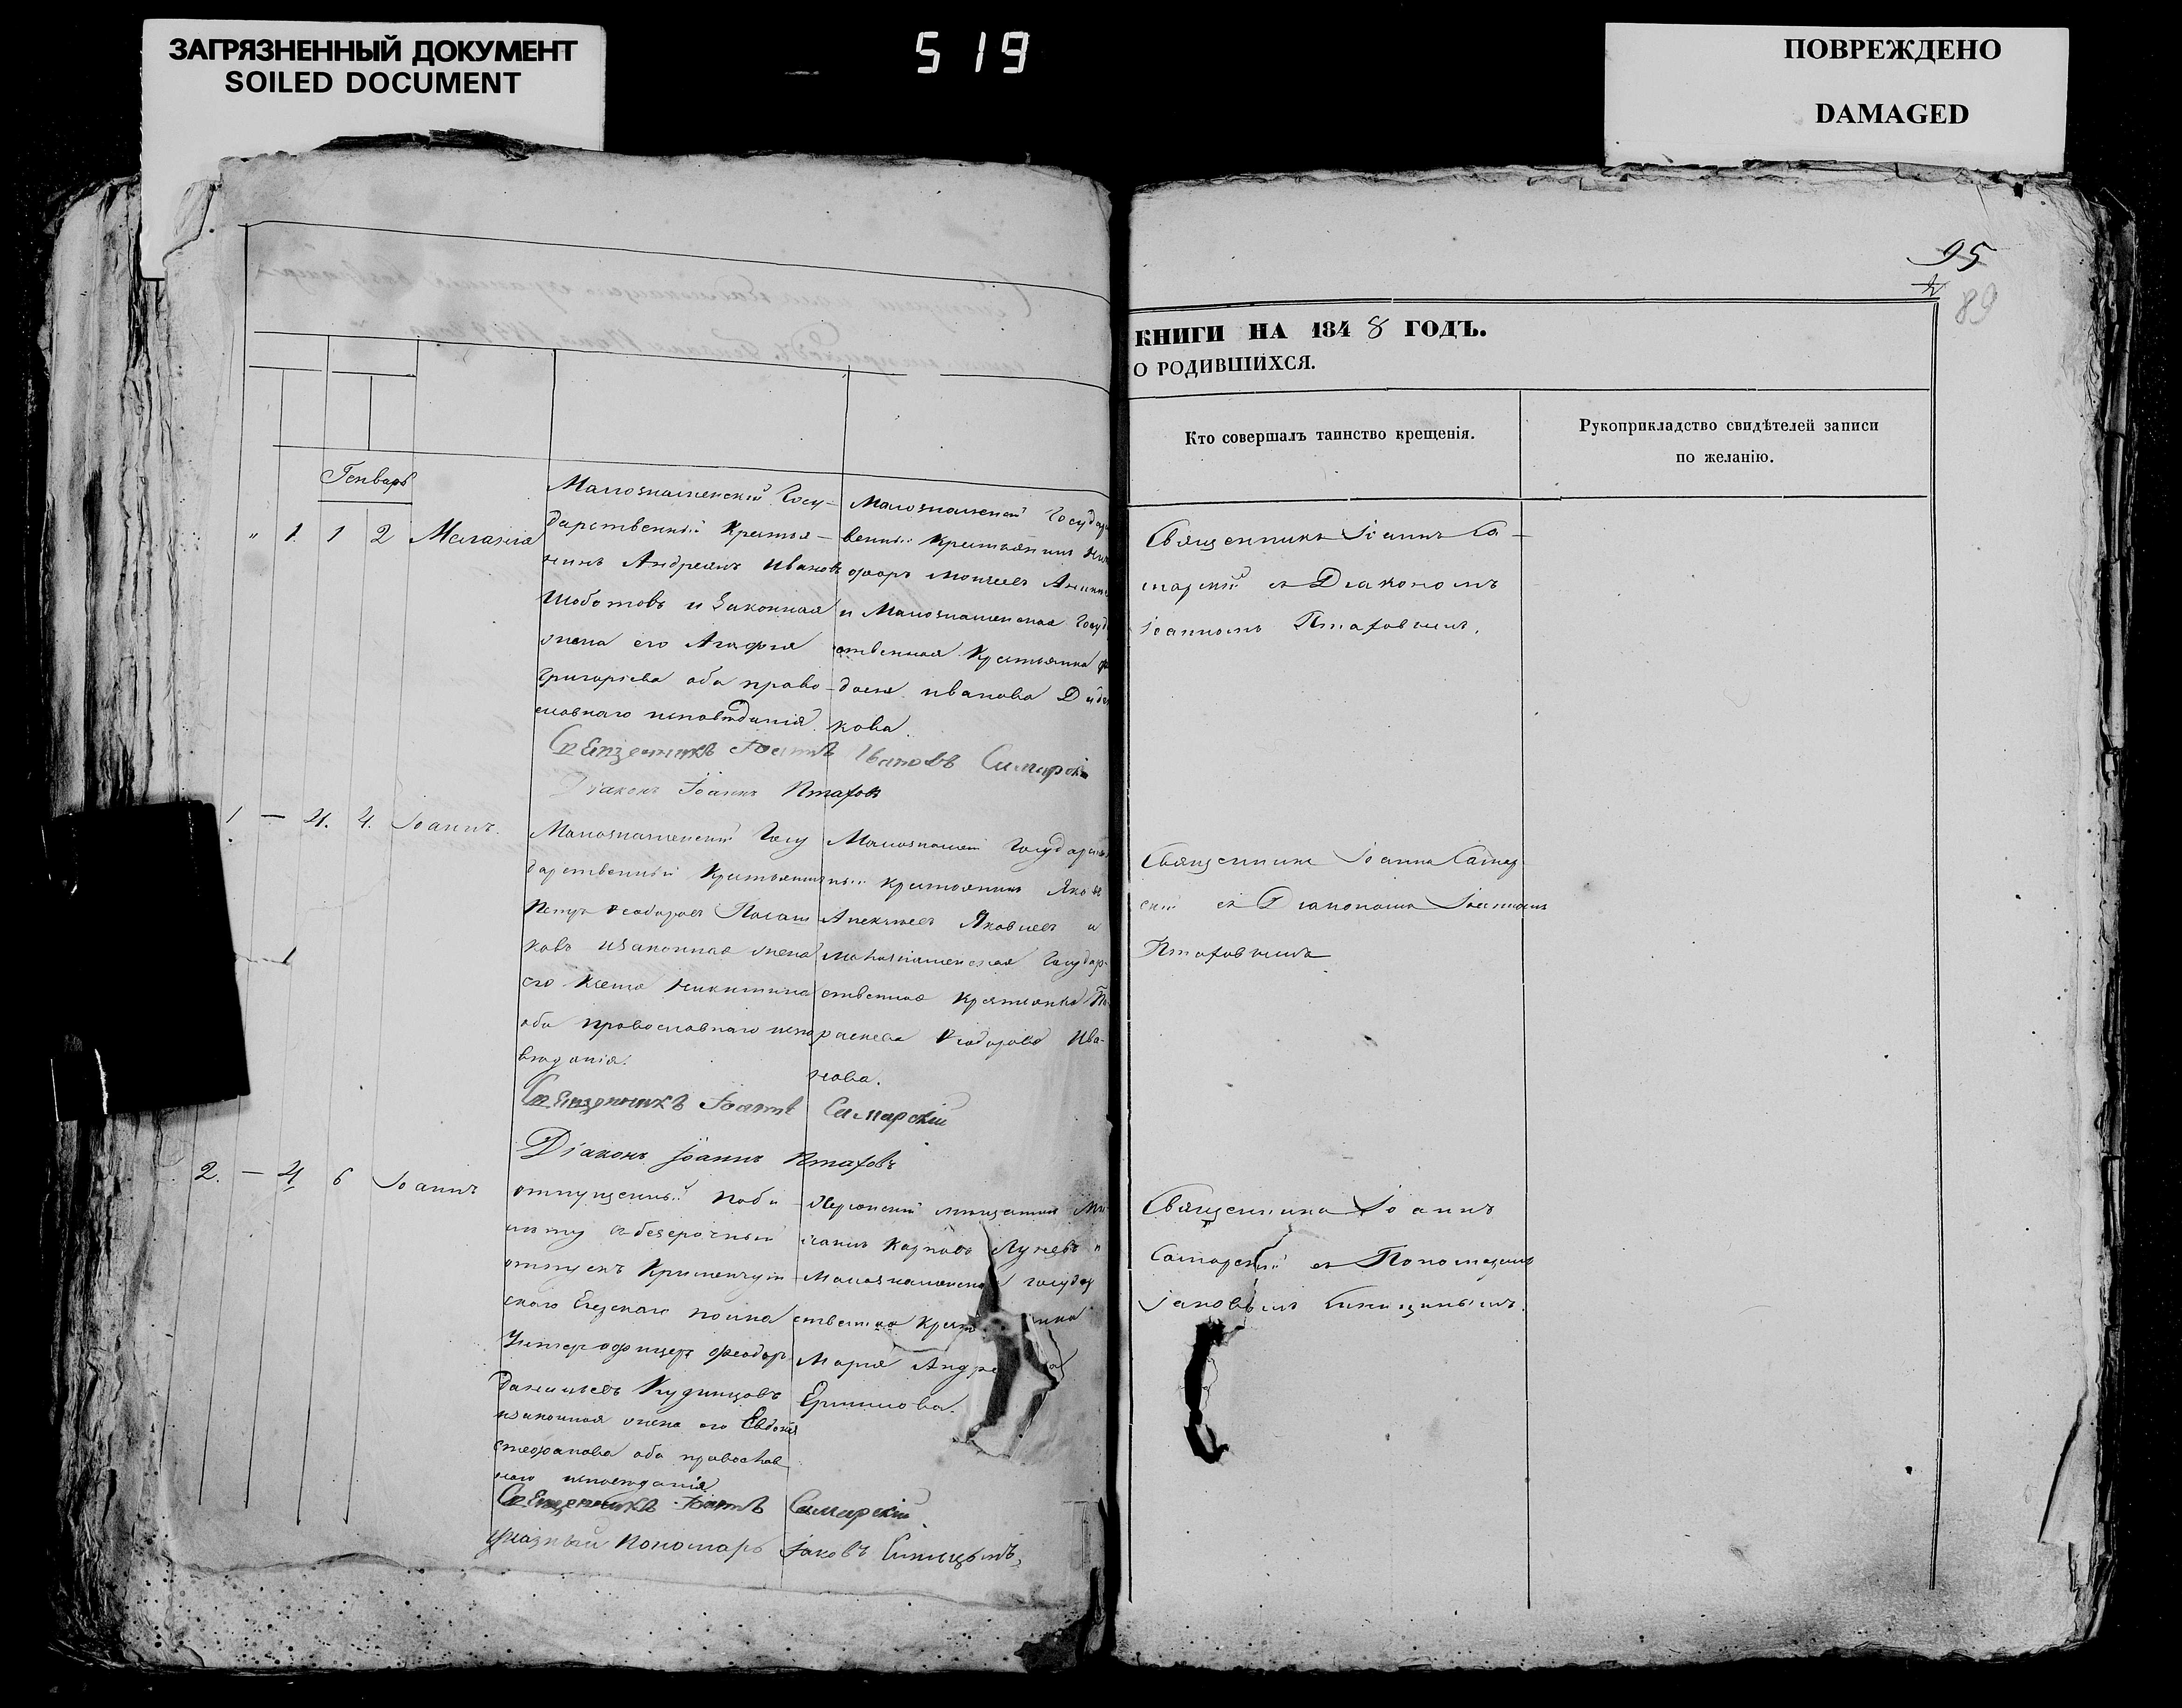 ЗАГРЯЗНЕННЫЙ ДОКУМЕНТ
SOILED DOCUMENT
519
ПОВРЕЖДЕНО
DAMAGED
95
89
КНИГИ НА 1848 ГОДЪ.
О РОДИВШИХСЯ.
Кто совершалъ таинство крещенія.
Рукоприкладство свидѣтелей записи
по желанію.
Генварь
" 1. 1 2 Меланія
Малознаменскій Госу-
дарственный Крестья-
нинъ Андреянъ Ивановъ
Шоботовъ и Законная
жена его Агафия
Григорьева оба право-
славнаго исповѣданія.
Малознаменскій Государ
венный Крестьянинъ
офоръ Моисеевъ
и Малознаменская Госуд
ственная Крестьянка
досия Иванова
кова.
Священникъ Іоаннъ Са-
марскій съ Діакономъ
Іоанномъ Птаховымъ.
Священникъ Іоаннъ Ивановъ Самарскій
Діаконъ Іоаннъ Птаховъ
1 — 4. 4. Іоаннъ.
Малознаменскій Госу
дарственный Крестьянинъ
Петръ Феодоровъ
ковъ и законная жена
его Никитина
оба православнаго испо
вѣданія.
Малознамен Государствен
ный крестьянинъ Яковъ
Алексѣевъ Яковлевъ и
Малознаменская Государ-
ственная Крестьянка
раскева Феодорова Ива-
нова.
Священникъ Іоаннъ Самар
скій съ Діакономъ Іоанномъ
Птаховымъ
Священникъ Іоаннъ Самарскій
Діаконъ Іоаннъ Птаховъ
2. — 4 6 Іоаннъ
отпущенный по би
лету въ безсрочный
отпускъ Кременчуг
скаго Егерскаго полка
Унтеръ офицеръ Феодоръ
Даниловъ Кудинцовъ
и законная жена его Евдокія
Стефанова оба православ
наго исповѣданія
Херсонскій мѣщанинъ
Карповъ и
Малознаменская государ
ственная Крест нка
Марія Андре а
Ермилова.
Священникъ Іоаннъ
Самарскій съ Пономаремъ
Іаковымъ Синицынымъ.
Священникъ Іоаннъ Самарскій
Указный Пономарь Іаковъ Синицынъ